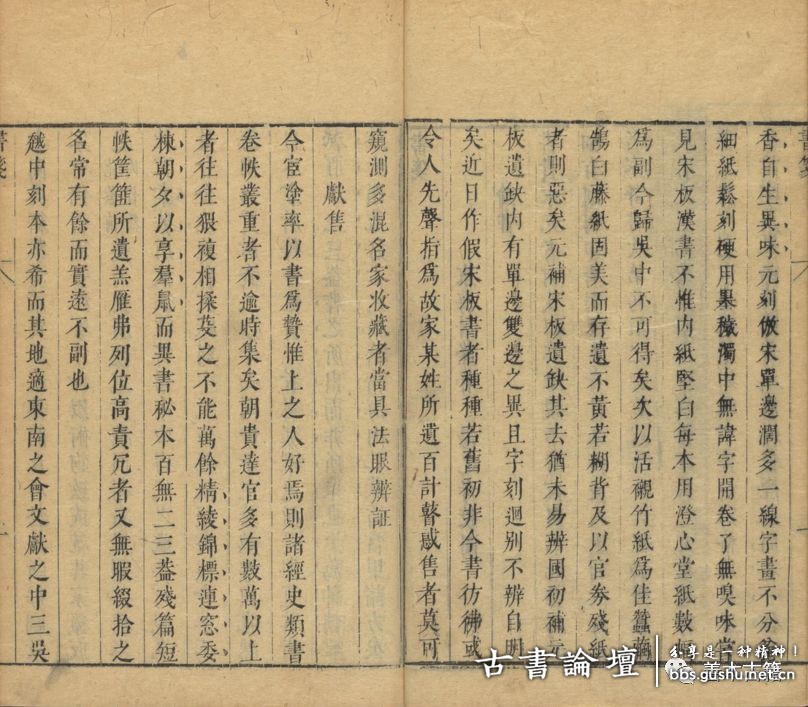 書箋
香自生異味元刻倣宋單邊濶多一線字畫不分
細紙鬆刻硬用墨穢濁中無諱字開卷了無嗅味嘗
見宋板漢書不惟内紙堅白每本用澄心堂紙數幅
爲副今歸吳中不可得矣次以活襯竹紙爲佳蠶繭
鵠白藤紙固美而存遺不黄若糊背及以官券殘紙
者則惡矣元補宋板遺缺其去猶未易辨國初補元
板遺缺内有單邊雙邊之異且字刻迥别不辨自明
矣近日作假宋板書者種種若舊初非今書彷彿或
令人先聲指爲故家某姓所遺百計瞽惑售者莫可
窺測多混名家收藏者當具法眼辨証
獻售
今宦塗率以書爲贄惟上之人好焉則諸經史類書
卷帙叢重者不逾時集矣朝貴達官多有數萬以上
者往往猥複相揉芟之不能萬餘精綾錦標連窓委
棟朝夕以享羣鼠而異書秘本百無二三葢殘篇短
帙筐篚所遺羔雁弗列位高責冗者又無暇綴拾之
名常有餘而實遠不副也
越中刻本亦希而其地適東南之會文獻之中三吳
書箋
古書論壇
分享是一种精神!
善本古籍
bbs.gushu.net.cn